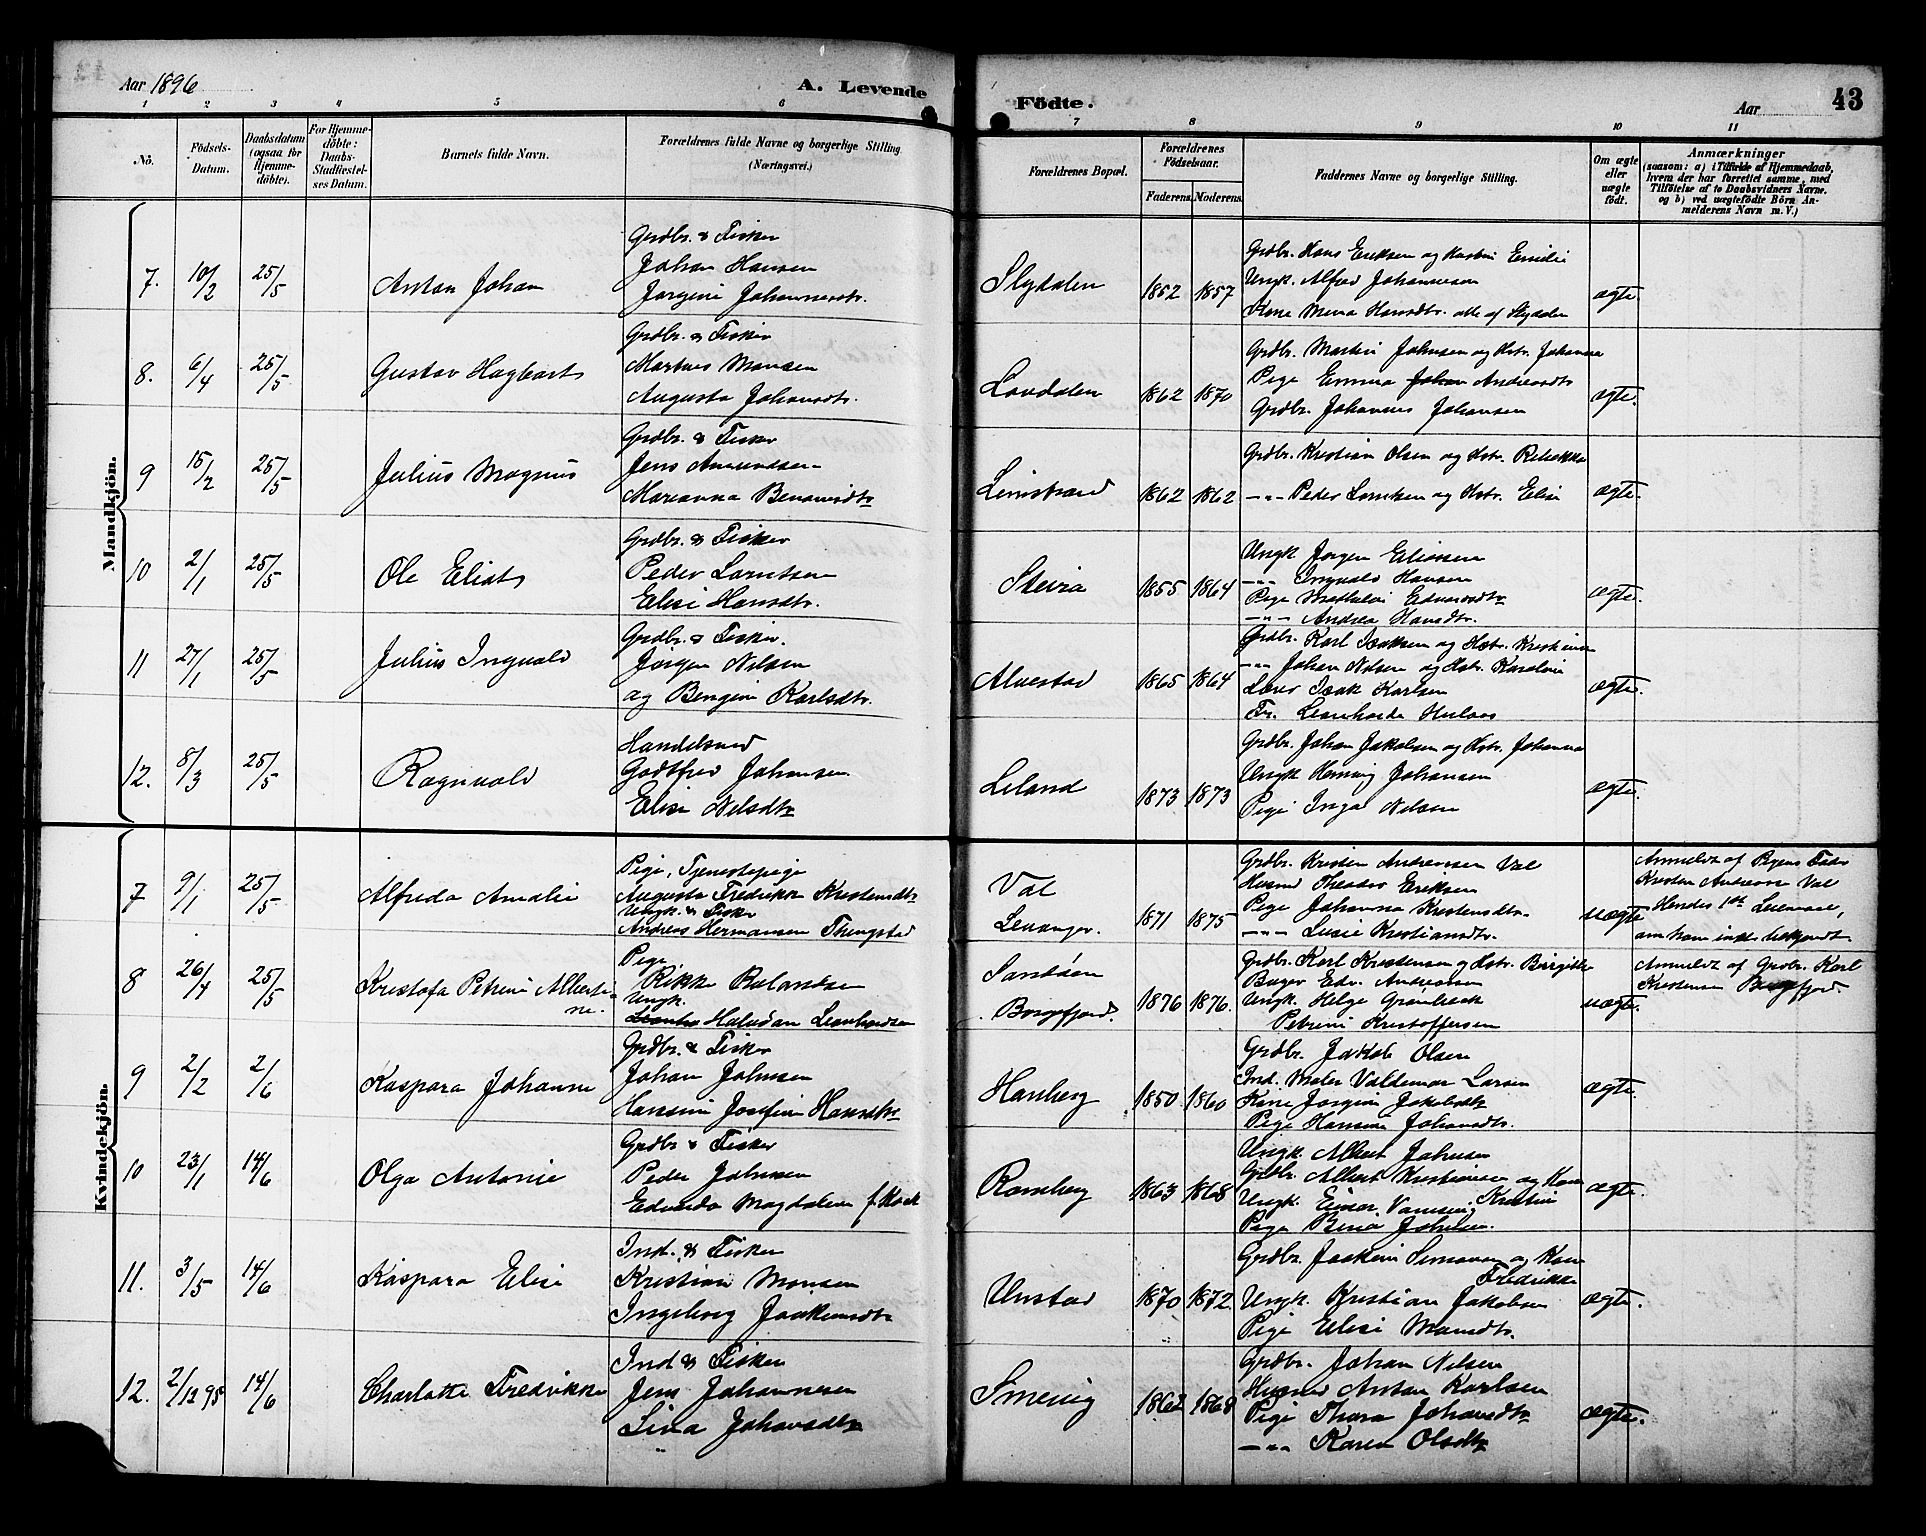 Aar 1896
A. Levende
Födte.
Aar
43
1 2 3 4 5 6 7 8 9 10 11
No.
Födsels-
Datum.
Daabsdatum
(ogsaa for
Hjemme-
döbte).
For Hjemme-
döbte:
Daabs-
Stadfæstel-
ses Datum.
Barnets fulde Navn.
Forældrenes fulde Navne og borgerlige Stilling
(Næringsvei.)
Forældrenes Bopæl.
Forældrenes
Födselsaar.
Faderens. Moderens.
Faddernes Navne og borgerlige Stilling.
Om ægte
eller
uægte
födt.
Anmærkninger
(saasom: a) i Tilfælde af Hjemmedaab,
hvem der har forrettet samme, med
Tilföielse af to Daabsvidners Navne.
og b) ved uægtefödte Börn An-
melderens Navn m. V.)
Mandkjön.
7. 10/2 25/5 Anton Johan
Grdbr. & Fisker
Johan Hansen
Jörgine Johannesdtr.
1852 1857
Grdbr. Hans Eriksen og Kustru Emilie
Ungk. Alfred Johannesen
Kone Mena Hansdtr. alle af Slydalen
Slydalen
ægte.
8. 6/4 25/5 Gustav Hagbart
Grdbr. & Fisker
Martines Monsen
Augusta Johansdtr.
1862 1870
Grdbr. Martin Johnsen og Hstr. Johanna
Pige Emma Andreasdtr
Grdbr. Johannes Johansen
ægte.
9 15/2 25/5 Julius Magnus
Grdbr. & Fisker
Jens Amundsen
Marianna Benoninsdtr
Limstrand 1862 1862
Grdbr. Kristian Olsen og Hstr. Rebekka
-"- Peder Lorntsen og Hstr. Elise
ægte.
10 2/1 25/5 Ole Eliat
Grdbr. & Fisker
Peder Lorntsen
Elise Hansdtr.
Steira 1855 1864
Ungk. Jörgen Eliassen
-"- Ingvald Hansen
Pige Mathilde Edvardsdtr
-"- Andrea Hansdtr.
ægte.
11 27/1 25/5 Julius Ingvald
Grdbr. & Fisker.
Jörgen Nilsen
og Bergine Karlsdtr.
Alvestad 1865 1864
Grdbr. Karl Isaksen og Hstr. Kristine
-"- Johan Nilsen og Hstr. Karoline
Lærer Isak Karlsen
Fr. Leonharda
ægte.
12. 8/3 25/5 Ragnvald
Handelsmd
Godtfred Johansen
Elise Nilsdtr
Leland 1873 1873
Grdbr. Johan Jakobsen og Hstr. Johanna
Ungk Henning Johansen
Pige Inga Nilsen
ægte.
Kvindekjön.
7 9/1 25/5 Alfreda Amalie
Pige, Tjenestepige
Augusta Fredrikke Kristensdtr
Ungk. & Fisker
Andreas Hermansen Thengstad
Val
Levanger. 1871 1875
Grdbr. Kristen Andreassen Val
Husmd Theodor Eriksen
Pige Johanna Kristensdtr.
-"- Lusie Kristiansdtr.
uægte
Anmeldt af Pigens Fader
Kristen Andreass Val
Hendes 1ste Leiermaal,
om ham intet bekjendt.
8 26/4 25/5 Kristofa Petrine Alberti-
ne.
Pige
Rikke Rolandsen
Ungk.
Halvdan Leonhardsen
Sandöen
Borgefjord. 1876 1876.
Grdbr. Karl Kristensen og Hstr. Birgitte
Bager Edv. Andreassen
Ungk. Helge Grönbeck
Petrine Kristoffersen
uægte.
Anmeldt af Grdbr. Karl
Kristensen Borgefjord.
9 2/2 2/6 Kaspara Johanne
Grdbr. & Fisker
Johan Johnsen
Hansine Josefine Hansdtr
Hanberg 1850 1860
Grdbr. Jakob Olsen
Ind. Maler Valdemar Larsen
Kone Jörgine Jakobsdtr
Pige Hansine Johansdtr.
ægte.
10 23/1 14/6 Olga Antonie
Grdbr & Fisker
Peder Johnsen
Edvarda Magdalene f. Kock
Ramberg 1863 1868
Ungk. Albert Johnsen
Grdbr. Albert Kristiansen og Kone
Kristine
Ungk. Einar
Pige Berea Johnsen.
ægte.
11. 3/5 14/6 Kaspara Elise
Ind. & Fisker
Kristian Monsen
Ingeborg Joakimsdtr
Unstad 1870 1872.
Grdbr. Joakim Simonsen og Kone
Fredrikke
Ungk. Kristian Jakobsen
Pige Elise Monsdtr.
ægte.
12. 2/12 95 14/6 Charlotte Fredrikke
Ind & Fisker
Jens Johannesen
Lina Johansdtr
Smerug 1862 1868
Grdbr. Johan Nilsen
Husmd Anton Karlsen
Pige Thora Johansdtr
-"- Karen Olsdtr
ægte.